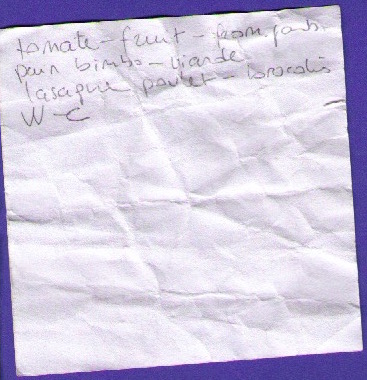 tomate - fruit - 
pain bimbo - viande
lasagne poulet - brocolis
W-C